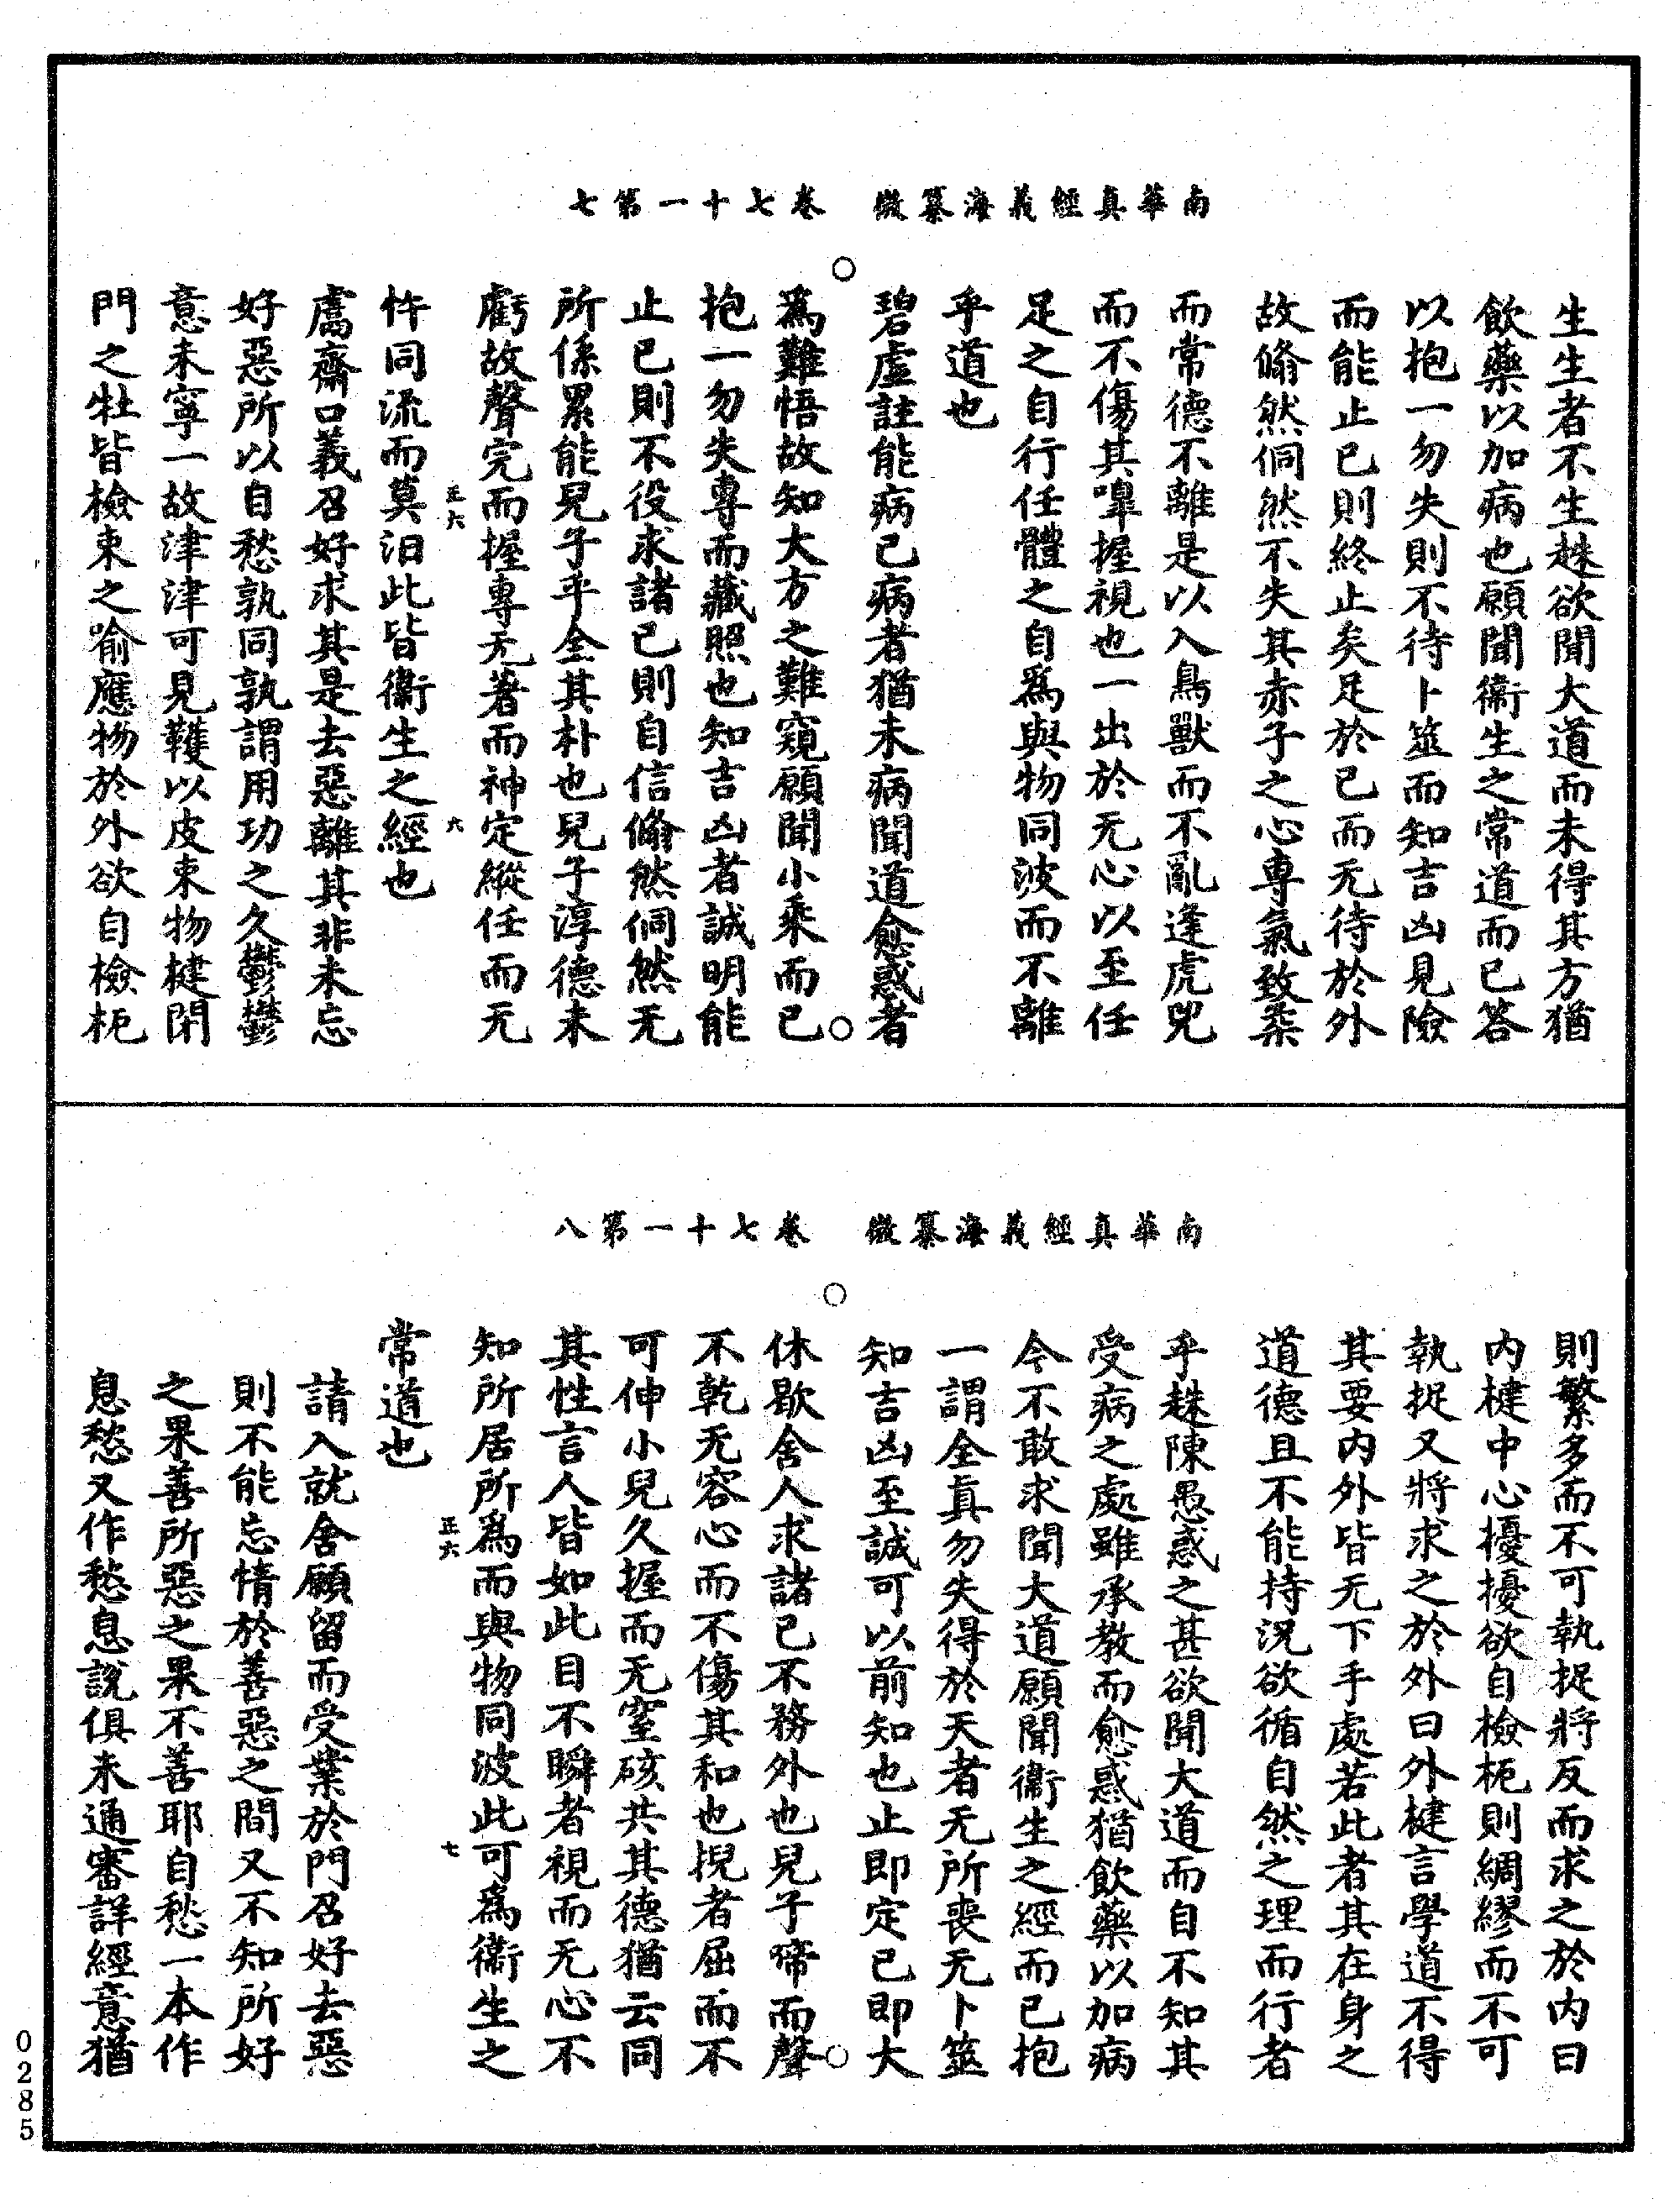 南華真經義海纂微　卷七十一第七
生生者不生趎欲聞大道而未得其方猶
飲藥以加病也願聞衞生之常道而已答
以抱一勿失則不待卜筮而知吉凶見險
而能止已則終止矣足於已而无待於外
故翛然侗然不失其赤子之心專氣致柔
而常德不離是以入鳥獸而不亂逢虎兕
而不傷其嘷握視也一出於无心以至任
足之自行任體之自爲與物同波而不離
乎道也
碧虛註能病已病者猶未病聞道愈惑者
爲難悟故知大方之難窺願聞小乘而已
抱一勿失專而藏照也知吉凶者誠明能
止已則不役求諸已則自信翛然侗然无
所係累能兒子乎全其朴也兒子淳德未
虧故聲完而握專无著而神定縱任而无
忤同流而莫汨此皆衞生之經也
正六
六
鬳齋口義召好求其是去惡離其非未忘
好惡所以自愁孰同孰謂用功之久鬱鬱
意未寧一故津津可見韄以皮束物楗閉
門之牡皆檢束之喻應物於外欲自檢柅
南華真經義海纂微　卷七十一第八
則繁多而不可執捉將反而求之於内曰
内楗中心擾擾欲自檢柅則綢繆而不可
執捉又將求之於外曰外楗言學道不得
其要内外皆无下手處若此者其在身之
道德且不能持況欲循自然之理而行者
乎趎陳愚惑之甚欲聞大道而自不知其
受病之處雖承教而愈惑猶飲藥以加病
今不敢求聞大道願聞衞生之經而已抱
一謂全真勿失得於天者无所喪无卜筮
知吉凶至誠可以前知也止即定已即大
休歇舍人求諸已不務外也兒子啼而聲
不乾无容心而不傷其和也掜者屈而不
可伸小兒久握而无窒礙共其德猶云同
其性言人皆如此目不瞬者視而无心不
知所居所爲而與物同波此可爲衞生之
常道也
正六
七
請入就舍願留而受業於門召好去惡
則不能忘情於善惡之間又不知所好
之果善所惡之果不善耶自愁一本作
息愁又作愁息說俱未通審詳經意猶
0285